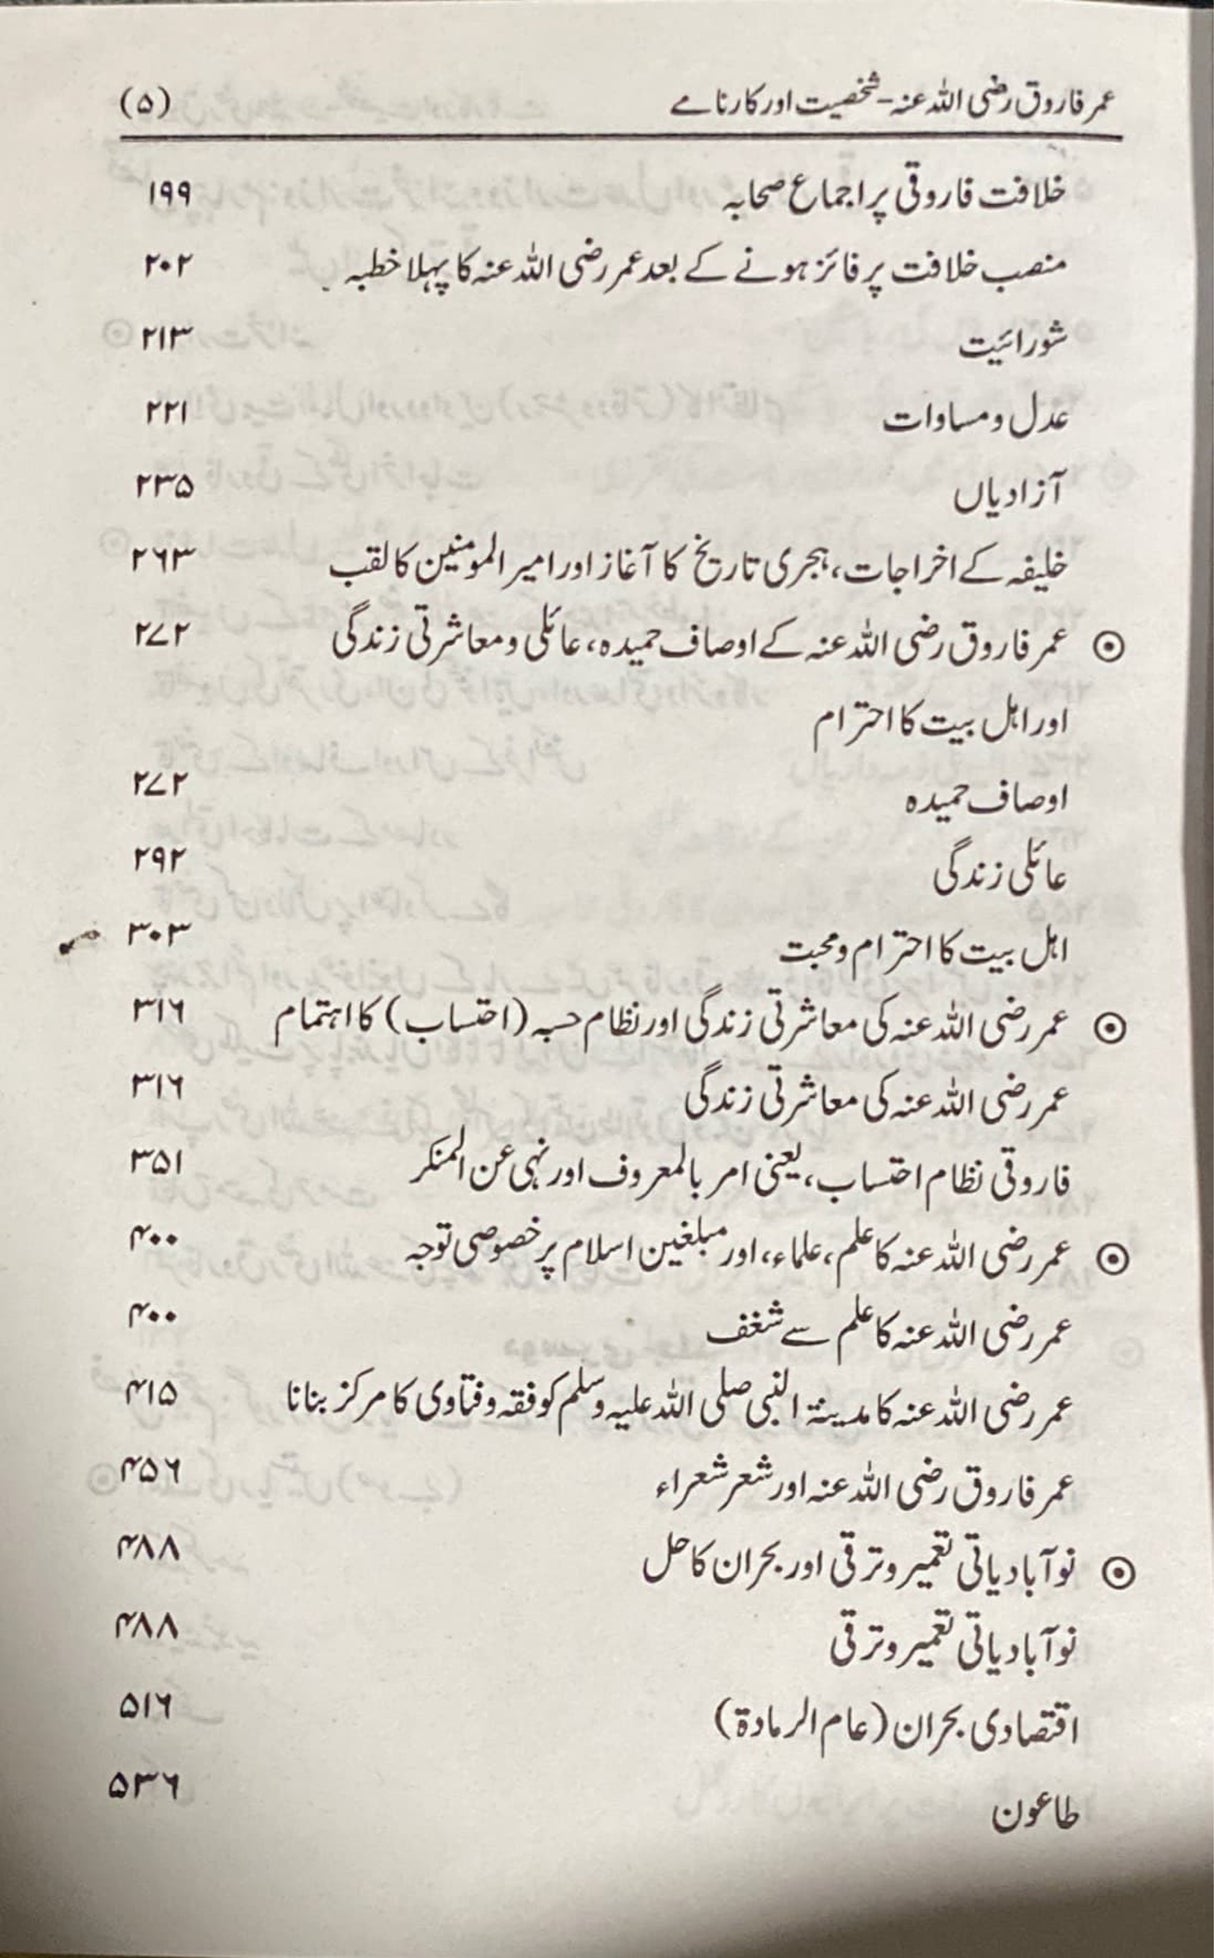 عمر فاروق رضی اللہ عنہ - شخصیت اور کارنامے (۵)
خلافت فاروقی پر اجماع صحابہ ۱۹۹
منصب خلافت پر فائز ہونے کے بعد عمر رضی اللہ عنہ کا پہلا خطبہ ۲۰۲
شورائیت ۲۱۳
عدل و مساوات ۲۲۱
آزادیاں ۲۳۵
خلیفہ کے اخراجات، ہجری تاریخ کا آغاز اور امیر المومنین کا لقب ۲۶۳
⊙ عمر فاروق رضی اللہ عنہ کے اوصاف حمیدہ، عائلی و معاشرتی زندگی ۲۷۲
اور اہل بیت کا احترام
اوصاف حمیدہ ۲۷۲
عائلی زندگی ۲۹۲
اہل بیت کا احترام و محبت ۳۰۳
⊙ عمر رضی اللہ عنہ کی معاشرتی زندگی اور نظام حسبہ (احتساب) کا اہتمام ۳۱۶
عمر رضی اللہ عنہ کی معاشرتی زندگی ۳۱۶
فاروقی نظام احتساب، یعنی امر بالمعروف اور نہی عن المنکر ۳۵۱
⊙ عمر رضی اللہ عنہ کا علم، علماء، اور مبلغین اسلام پر خصوصی توجہ ۴۰۰
عمر رضی اللہ عنہ کا علم سے شغف ۴۰۰
عمر رضی اللہ عنہ کا مدینۃ النبی صلی اللہ علیہ وسلم کو فقہ و فتاوی کا مرکز بنانا ۴۱۵
عمر فاروق رضی اللہ عنہ اور شعر شعراء ۴۵۶
⊙ نوآبادیاتی تعمیر و ترقی اور بحران کا حل ۴۸۸
نوآبادیاتی تعمیر و ترقی ۴۸۸
اقتصادی بحران (عام الرمادۃ) ۵۱۶
طاعون ۵۳۶